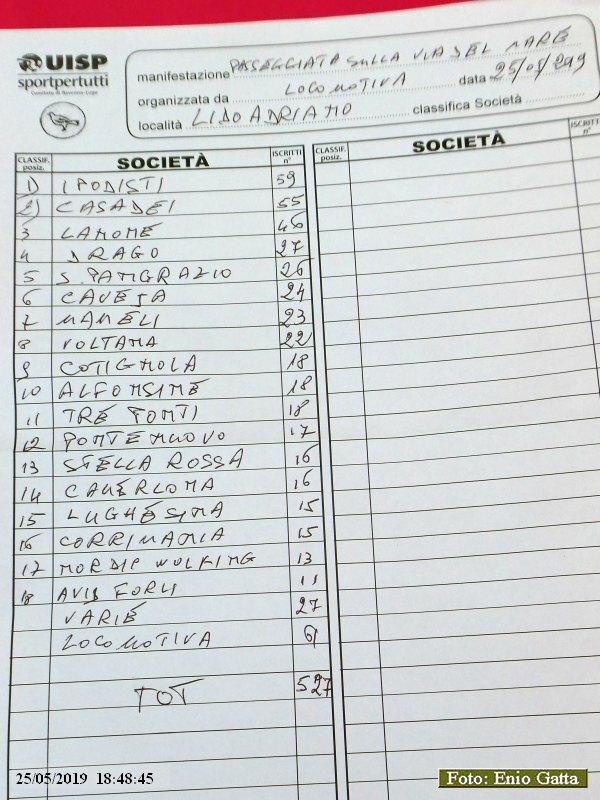 UISP
sportpertutti
Comitato di Ravenna-Lugo
manifestazione PASEGGIATA SULLA VIA DEL MARE
organizzata da LOCOMOTIVA data 25/05/2019
località LIDO ADRIANO classifica Società
CLASSIF. posiz. SOCIETÀ ISCRITTI n° CLASSIF. posiz. SOCIETÀ ISCRITTI n°
1) I PODISTI 59
2) CASADEI 55
3 LAMONE 46
4 DRAGO 27
5 S. PANGRAZIO 26
6 CAVEJA 24
7 MAMELI 23
8 VOLTANA 22
9 COTIGNOLA 18
10 ALFONSINE 18
11 TRE PONTI 18
12 PONTENUOVO 17
13 STELLA ROSSA 16
14 CAVERLONA 16
15 LUGHESINA 15
16 CORRIMANIA 15
17 NORDIP WOLKING 13
18 AVIS FORLI 11
VARIE 27
LOCOMOTIVA 61
TOT 527
25/05/2019 18:48:45
Foto: Enio Gatta